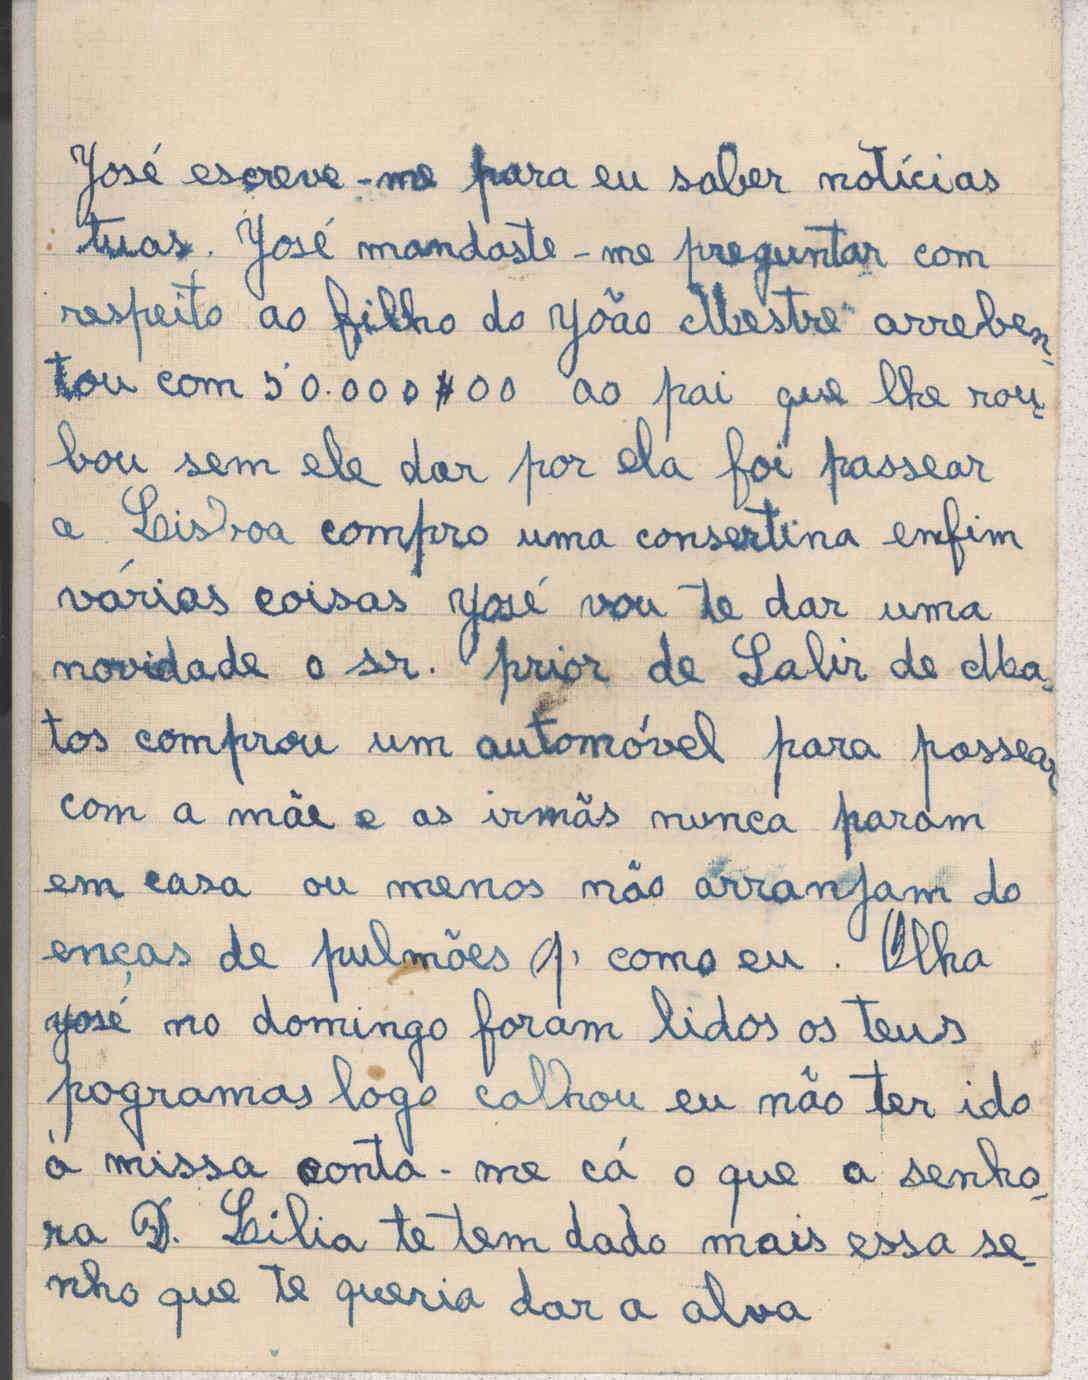 José escreve-me para eu saber notícias
tuas. José mandaste-me preguntar com
respeito ao filho do João Mestre arreben-
tou com 50.000$00 ao pai que lhe rou-
bou sem ele dar por ela foi passear
a Lisboa compro uma consertina enfim
várias coisas José vou te dar uma
novidade o sr. prior de Salir de Ma-
tos comprou um automóvel para passear
com a mãe e as irmãs nunca param
em casa ou menos não arranjam do
enças de pulmões q' como eu. Olha
José no domingo foram lidos os teus
pogramas logo calhou eu não ter ido
à missa conta-me cá o que a senho-
ra D. Lilia te tem dado mais essa se-
nho que te queria dar a alva